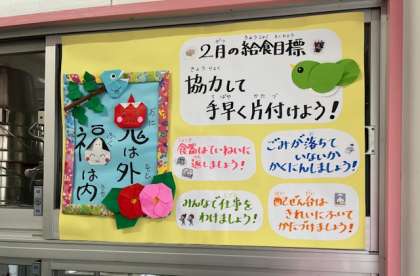 2月の給食目標
協力して
手早く片付けよう!
鬼は外
福は内
食器はていねいに
返しましょう!
ごみが落ちて
いないか
かくにんしましょう!
みんなで仕事を
わけましょう!
配ぜん台は
きれいにふいて
かたづけましょう!